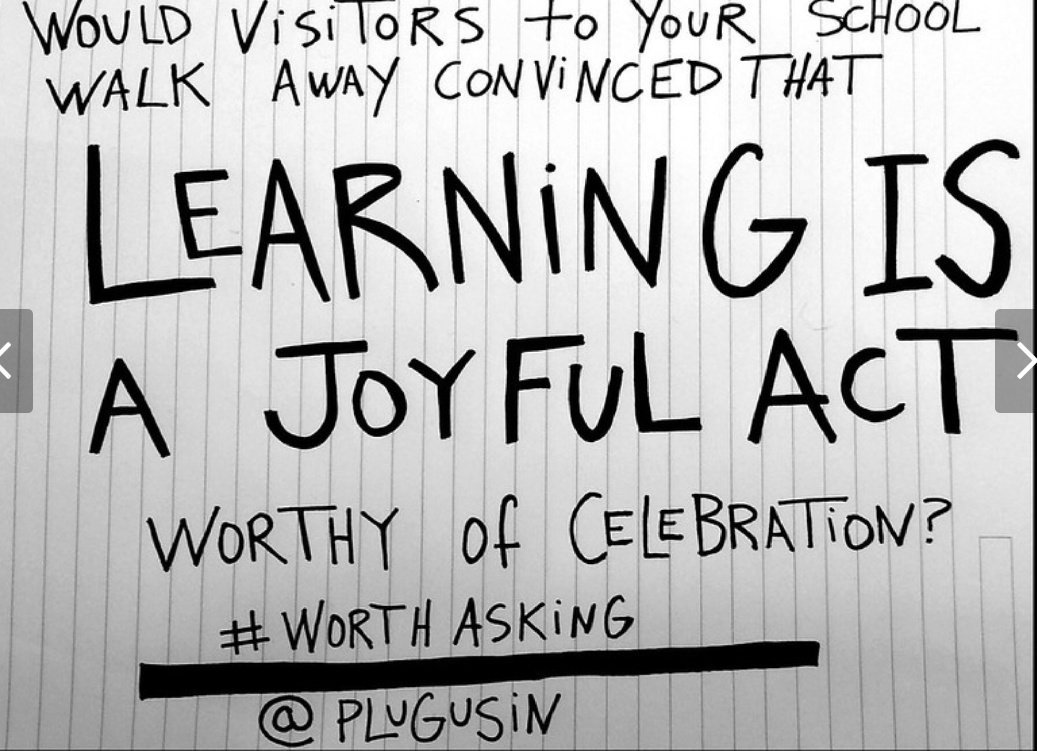 WOULD ViSiTORS to YOUR SCHOOL
WALK AWAY CONViNCED THAT
LEARNiNG IS
A JOYFUL ACT
WORTHY of CELEBRATiON?
# WORTH ASKiNG
@ PLUGUSiN